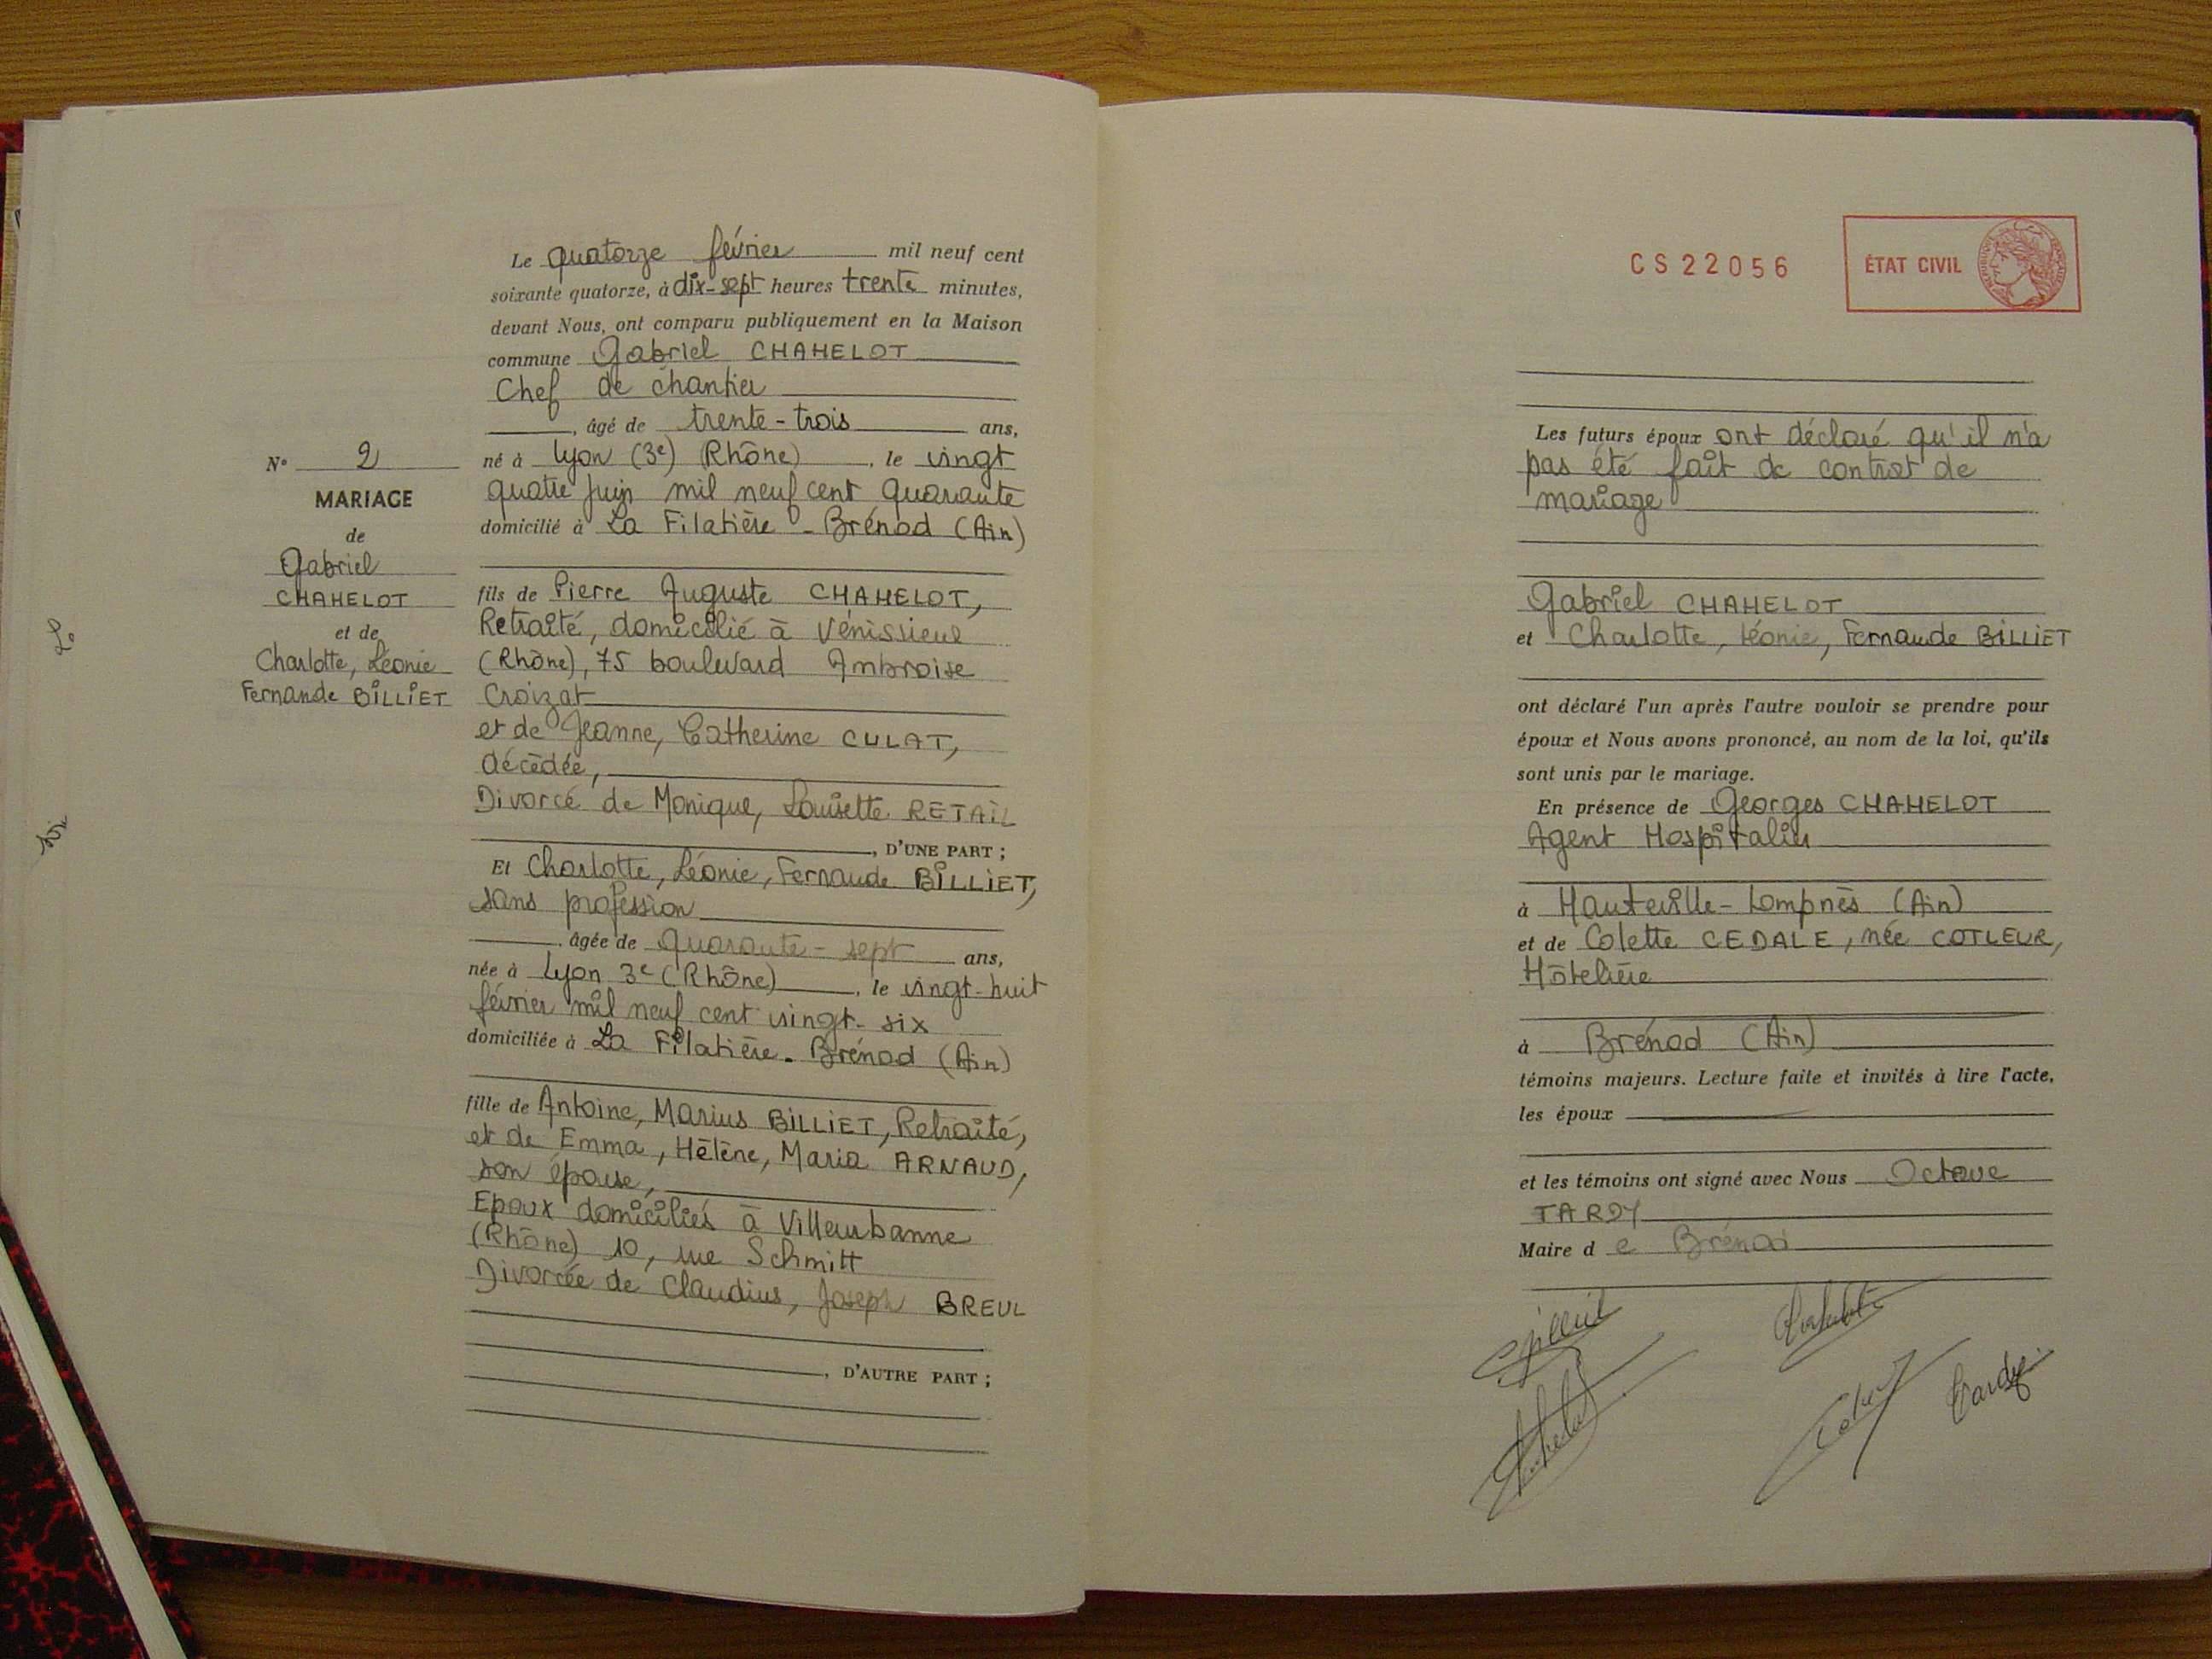 Le quatorze février mil neuf cent
soixante quatorze, à dix-sept heures trente minutes,
devant Nous, ont comparu publiquement en la Maison
commune Gabriel CHAHELOT
Chef de chantier
, âgé de trente-trois ans,
né à Lyon (3e) (Rhône), le vingt
quatre Juin mil neuf cent quarante
domicilié à La Filatière - Brénod (Ain)
fils de Pierre Auguste CHAHELOT,
Retraité, domicilié à Vénissieux
(Rhône), 75 boulevard Ambroise
Croizat
et de Jeanne, Catherine CULAT,
décédée,
Divorcé de Monique, Louisette RETAIL
, D'UNE PART ;
Et Charlotte, Léonie, Fernande BILLIET,
sans profession
, âgée de quarante-sept ans,
née à Lyon 3e (Rhône), le vingt-huit
février mil neuf cent vingt-six
domiciliée à La Filatière - Brénod (Ain)
fille de Antoine, Marius BILLIET, Retraité,
et de Emma, Hélène, Maria ARNAUD,
son épouse,
Epoux domiciliés à Villeurbanne
(Rhône) 10, rue Schmitt
Divorcée de Claudius, Joseph BREUL
, D'AUTRE PART ;
N° 2
MARIAGE
de
Gabriel
CHAHELOT
et de
Charlotte, Léonie
Fernande BILLIET
CS22056
ÉTAT CIVIL
Les futurs époux ont déclaré qu'il n'a
pas été fait de contrat de
mariage
Gabriel CHAHELOT
et Charlotte, Léonie, Fernande BILLIET
ont déclaré l'un après l'autre vouloir se prendre pour
époux et Nous avons prononcé, au nom de la loi, qu'ils
sont unis par le mariage.
En présence de Georges CHAHELOT
Agent Hospitalier
à Hauteville-Lompnès (Ain)
et de Colette CEDALE, née COTLEUR,
Hôtelière
à Brénod (Ain)
témoins majeurs. Lecture faite et invités à lire l'acte,
les époux
et les témoins ont signé avec Nous Octave
TARDY
Maire d e Brénod
Tardy